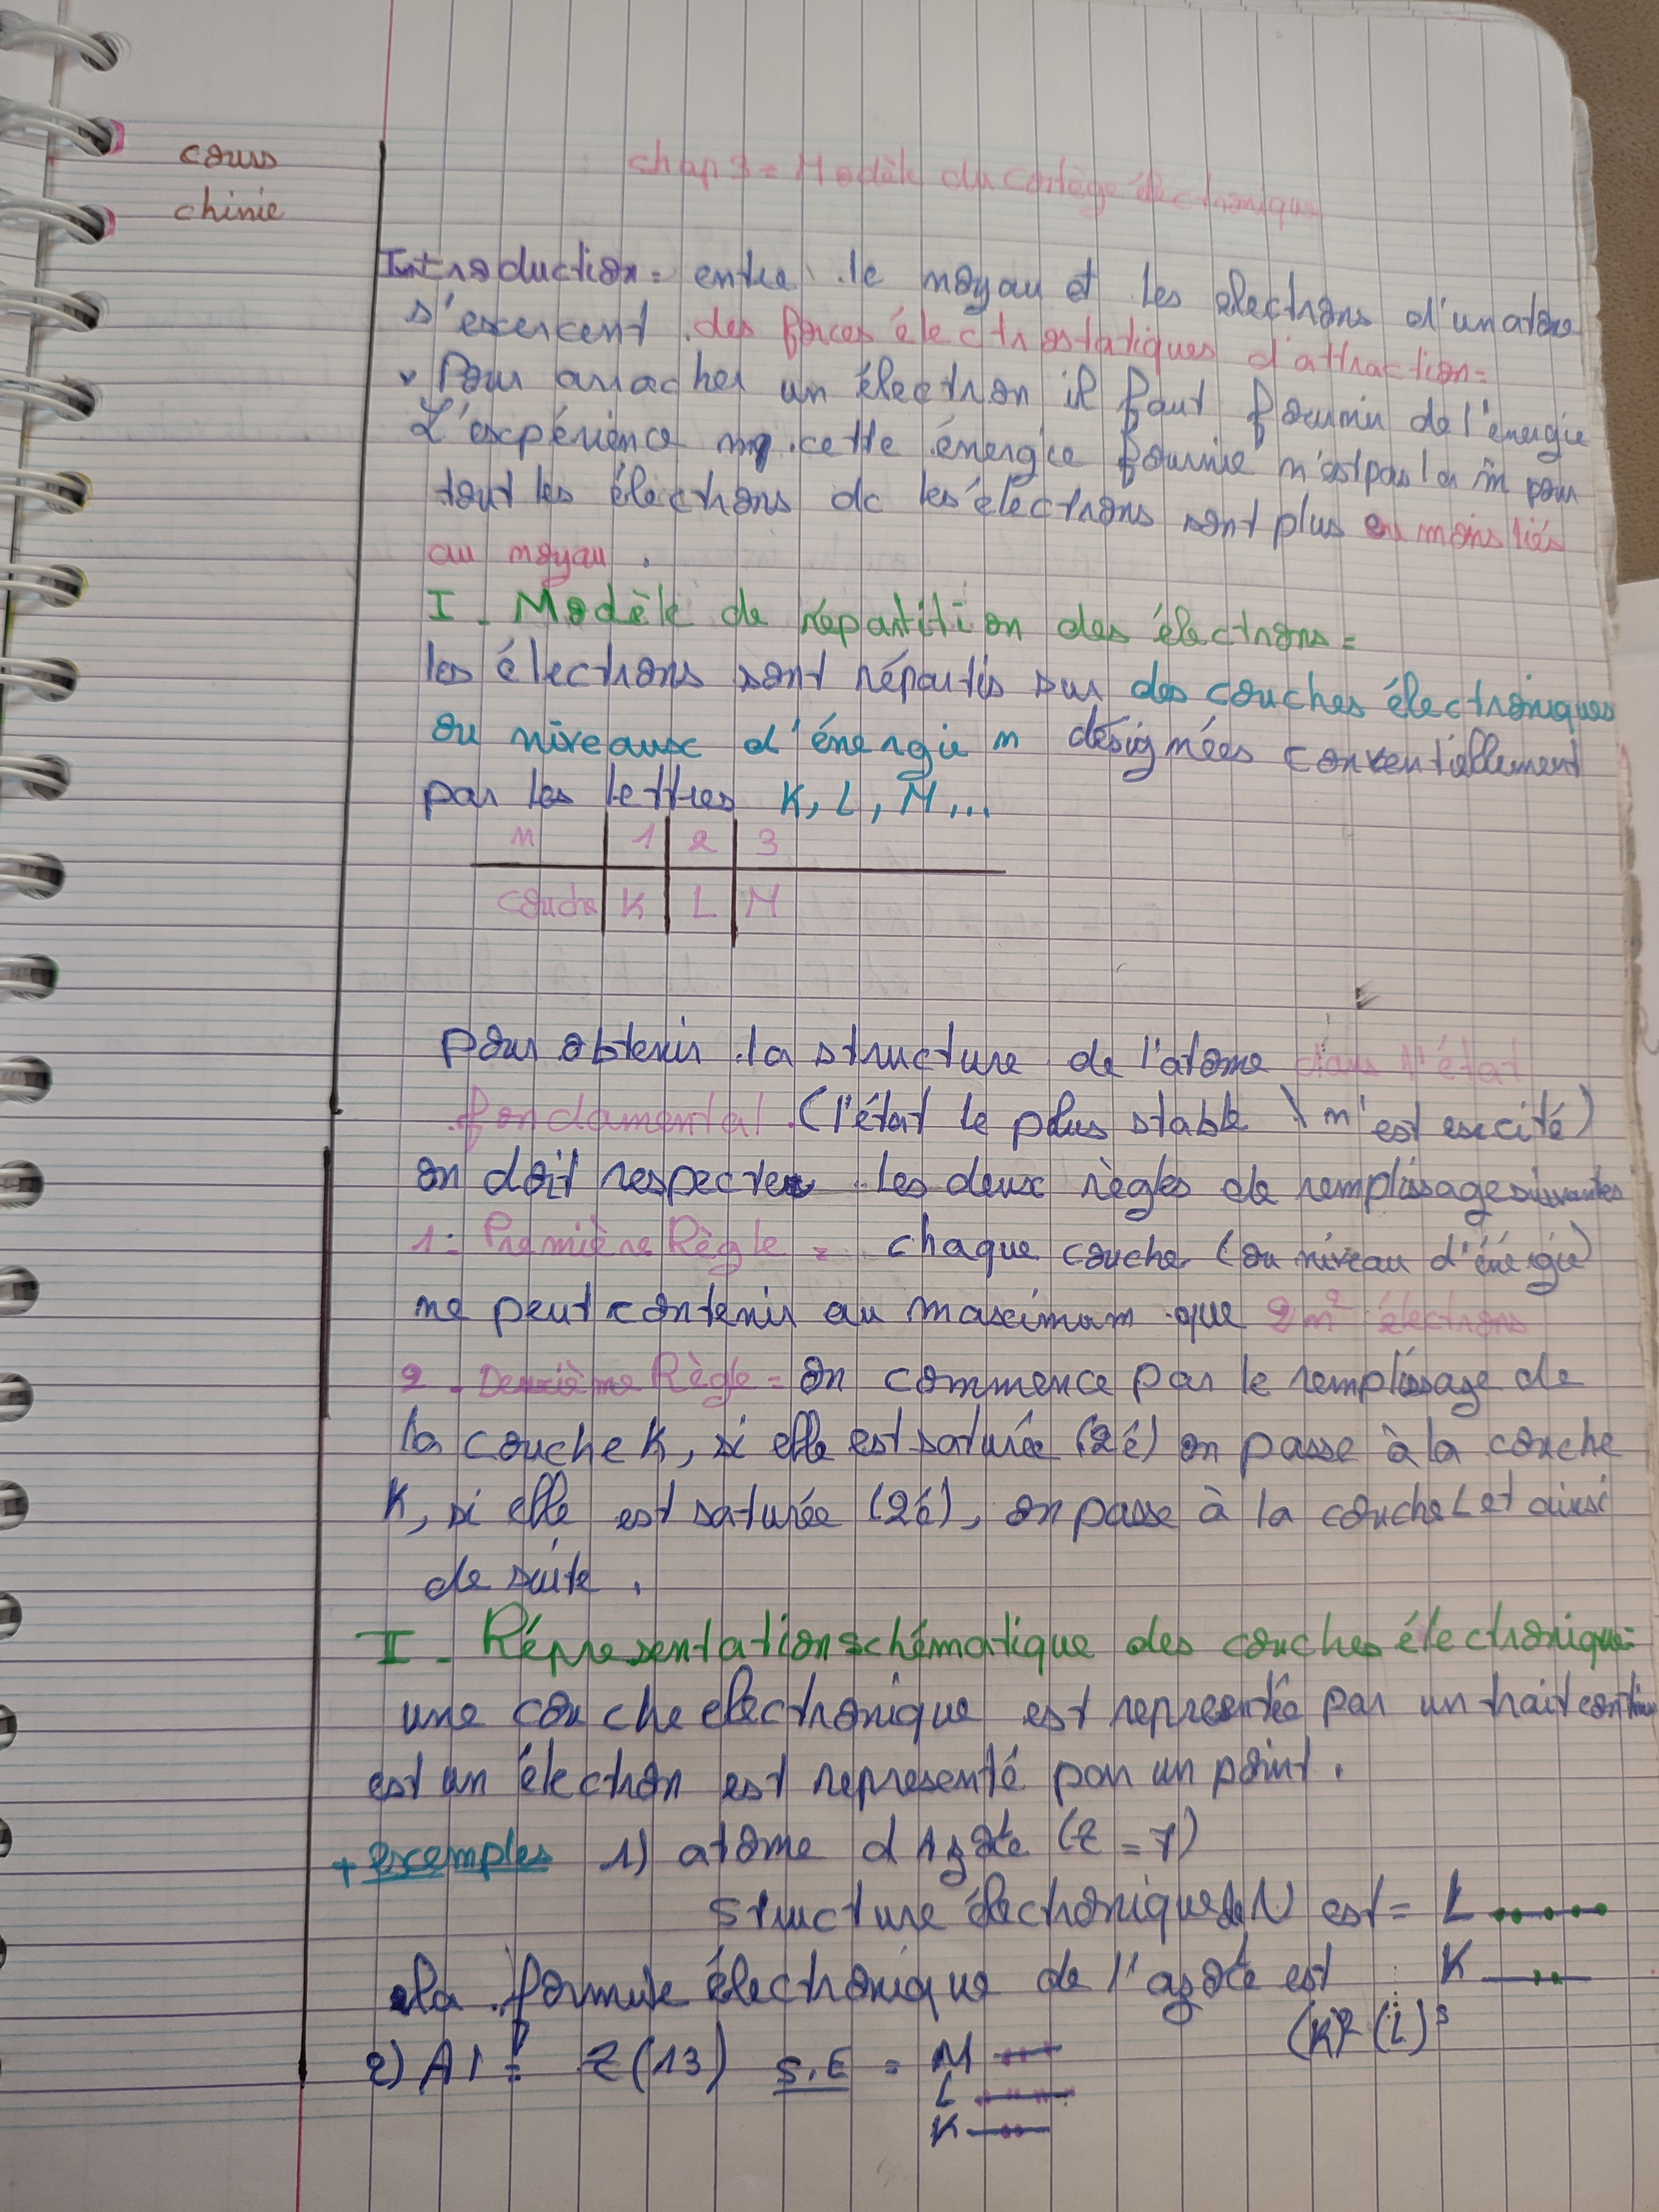 cours
chimie
chap 3 = Modèle du cortège électronique
Introduction = entre le noyau et les electrons d'un atome
s'exercent des forces électrostatiques d'attraction =
Pour arracher un électron il faut fournir de l'énergie
L'expérience mq cette énergie fournie n'est pas la m̂ pour
tout les électrons dc les électrons sont plus ou moins liés
au noyau .
I - Modèle de répartition des électrons =
les électrons sont répartis sur des couches électroniques
ou niveaux d'énergie n désignées conventiellement
par les lettres K, L, M...
n 1 2 3
couche K L M
pour obtenir la structure de l'atome dans l'état
fondamental (l'état le plus stable \ n'est excité)
on doit respecter les deux règles de remplissage suivantes
1- Première Règle = chaque couche (ou niveau d'énergie)
ne peut contenir au maximum que 2n² électrons
2 - Deuxième Règle = on commence par le remplissage de
la couche K, si elle est saturée (2é) on passe à la couche
K, si elle est saturée (2é), on passe à la couche L et ainsi
de suite .
II - Répresentation schématique des couches électronique =
une couche electronique est representée par un trait continu
est un électron est representé par un point .
+ exemples 1) atome d Azote (Z = 7)
structure électronique de N est = L
K
La formule électronique de l'azote est (K)² (L)³
2) Al = Z(13) S.E = M
L
K